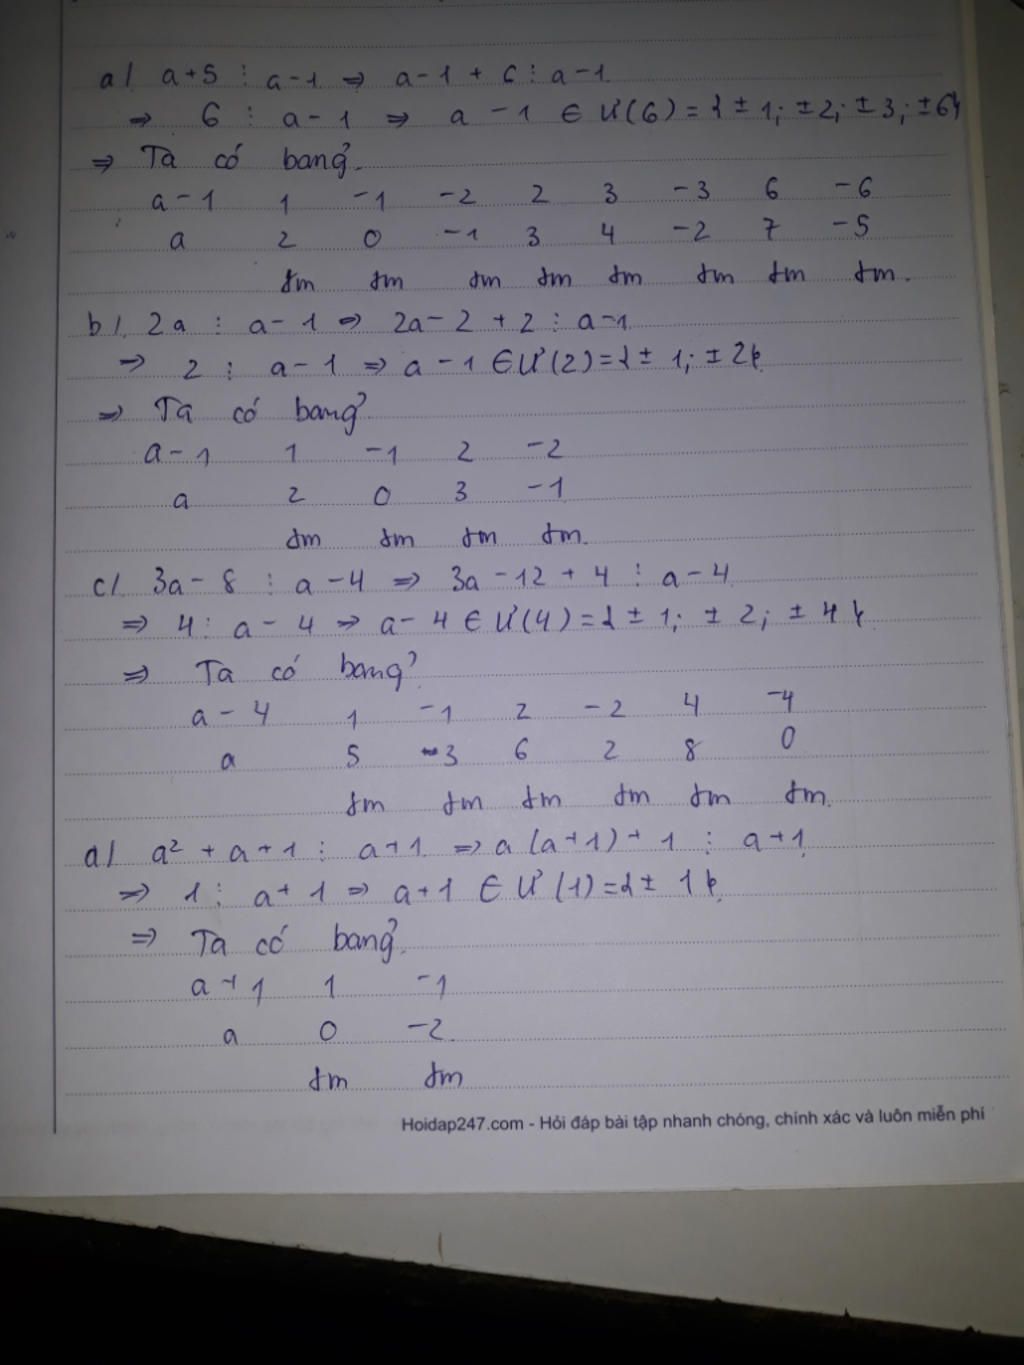 a/ a+5 ⋮ a-1 ⇒ a-1 + 6 ⋮ a-1.
⇒ 6 ⋮ a-1 ⇒ a-1 ∈ Ư(6) = {±1; ±2; ±3; ±6}
⇒ Ta có bảng.
a-1 1 -1 -2 2 3 -3 6 -6
a 2 0 -1 3 4 -2 7 -5
tm tm tm tm tm tm tm tm.
b/. 2a ⋮ a-1 ⇒ 2a-2 + 2 ⋮ a-1.
⇒ 2 ⋮ a-1 ⇒ a-1 ∈ Ư(2) = {±1; ±2}.
⇒ Ta có bảng.
a-1 1 -1 2 -2
a 2 0 3 -1
tm tm tm tm.
c/. 3a-8 ⋮ a-4 ⇒ 3a-12 + 4 ⋮ a-4.
⇒ 4 ⋮ a-4 ⇒ a-4 ∈ Ư(4) = {±1; ±2; ±4}.
⇒ Ta có bảng.
a-4 1 -1 2 -2 4 -4
a 5 -3 6 2 8 0
tm tm tm tm tm tm.
d/ a² + a + 1 ⋮ a+1. ⇒ a(a+1) + 1 ⋮ a+1.
⇒ 1 ⋮ a+1 ⇒ a+1 ∈ Ư(1) = {±1}.
⇒ Ta có bảng.
a+1 1 -1
a 0 -2.
tm tm
Hoidap247.com - Hỏi đáp bài tập nhanh chóng, chính xác và luôn miễn phí